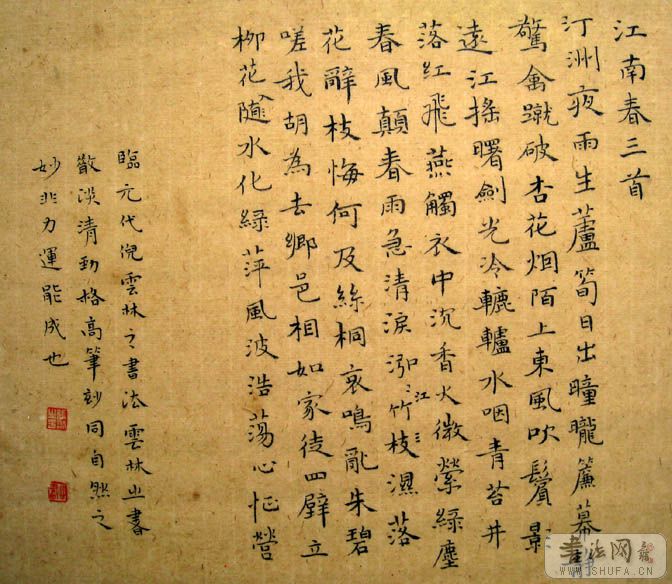 江南春三首
汀洲夜雨生蘆筍日出曈曨簾幕靜
驚禽蹴破杏花烟陌上東風吹鬢影
遠江搖曙劍光冷轆轤水咽青苔井
落紅飛燕觸衣巾沉香火微縈綠塵
春風顛春雨急清淚泓泓江竹枝濕落
花辭枝悔何及絲桐哀鳴亂朱碧
嗟我胡為去鄉邑相如家徒四壁立
柳花隨水化綠萍風波浩蕩心怔營
臨元代倪雲林之書法雲林之書
散淡清勁格高筆妙同自然之
妙非力運能成也
書法网
WWW.SHUFA.CN